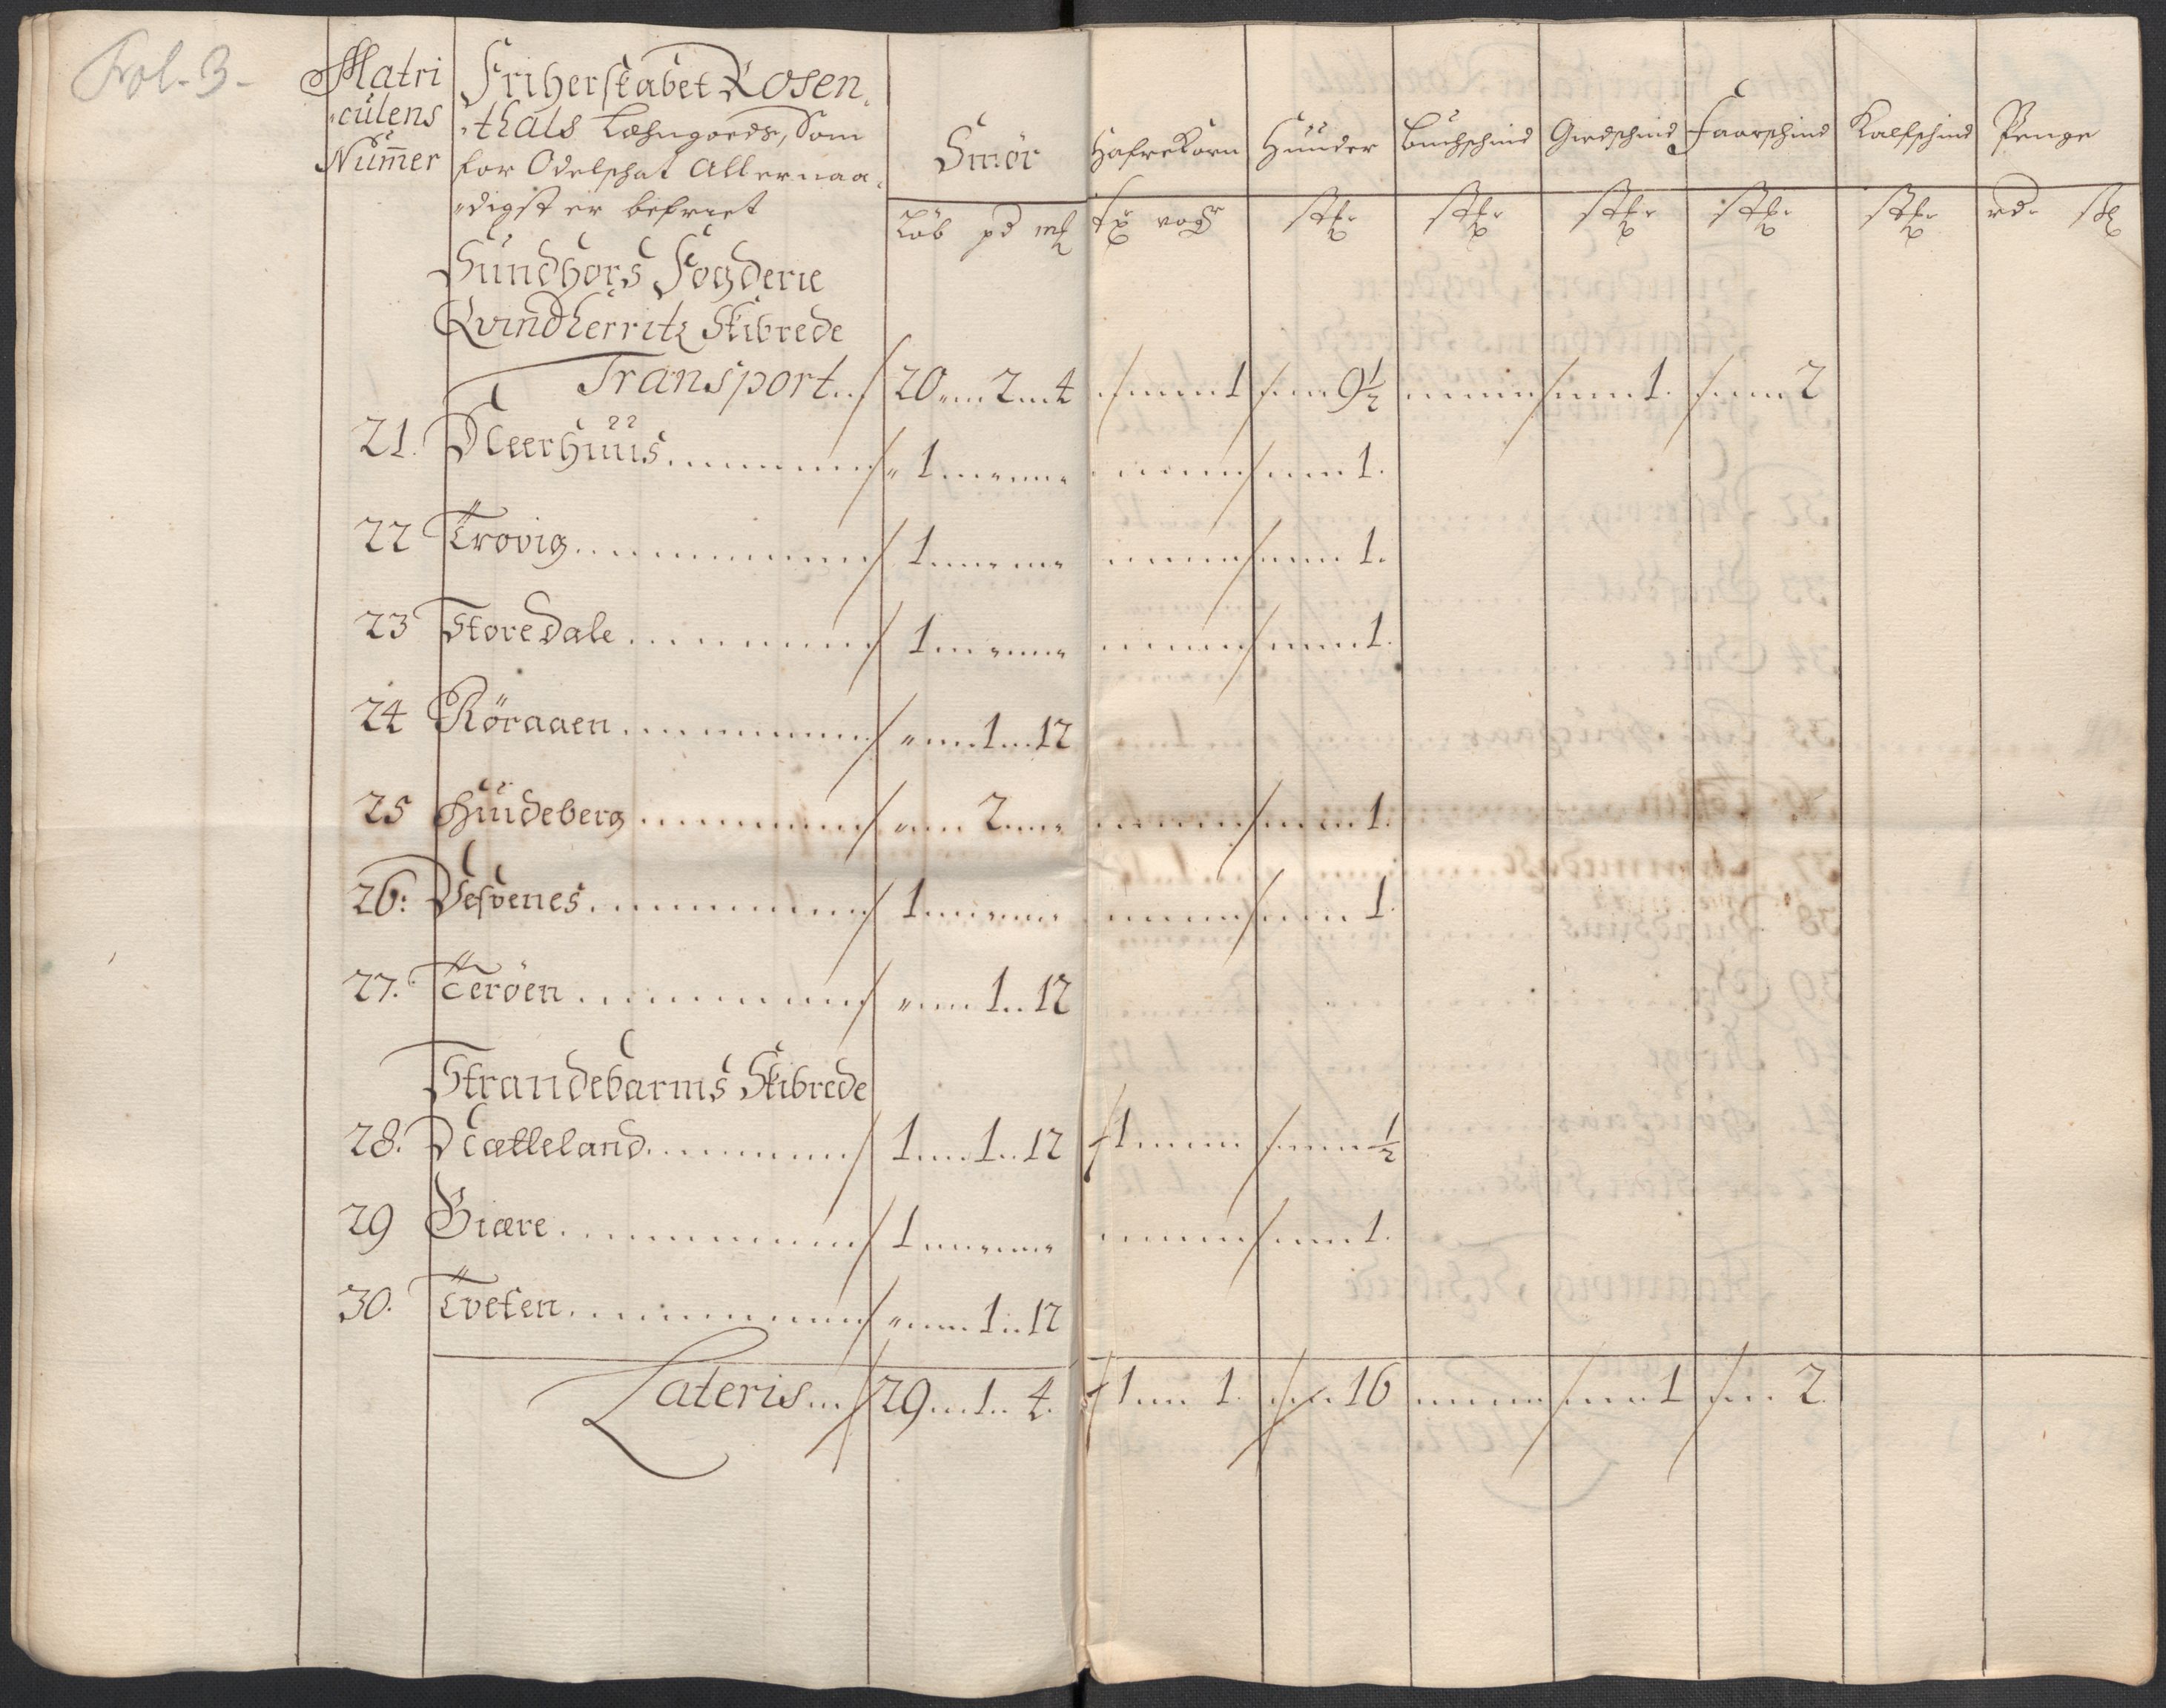 Fol. 3.
Matri
culens
Nummer
Friherskabet Rosen
thals Læhngoeds, Som
for Odelschat Allernaa
digst er befriet
Smör
Hafrekorn
Huuder
Buchschind
Giedschind
Faarschind
Kalfschind
Penge
Löb pd
Sundhors Fogderie
Qvindherritz Skibrede
Transport 20 2 4 1 9½ 1 2
21. Meerhuus 1 1
22 Trovig 1 1
23 Storedale 1 1
24 Röraaen 1 12
25 Huudeberg 2 1
26: Vesvenes 1 1
27. Teröen 1 12
Strandebarms Skibrede
28. Mælleland 1 1 12 1 ½
29 Giære 1 1
30. Tveten 1 12
Lateris 29 1 4 1 1 16 1 2